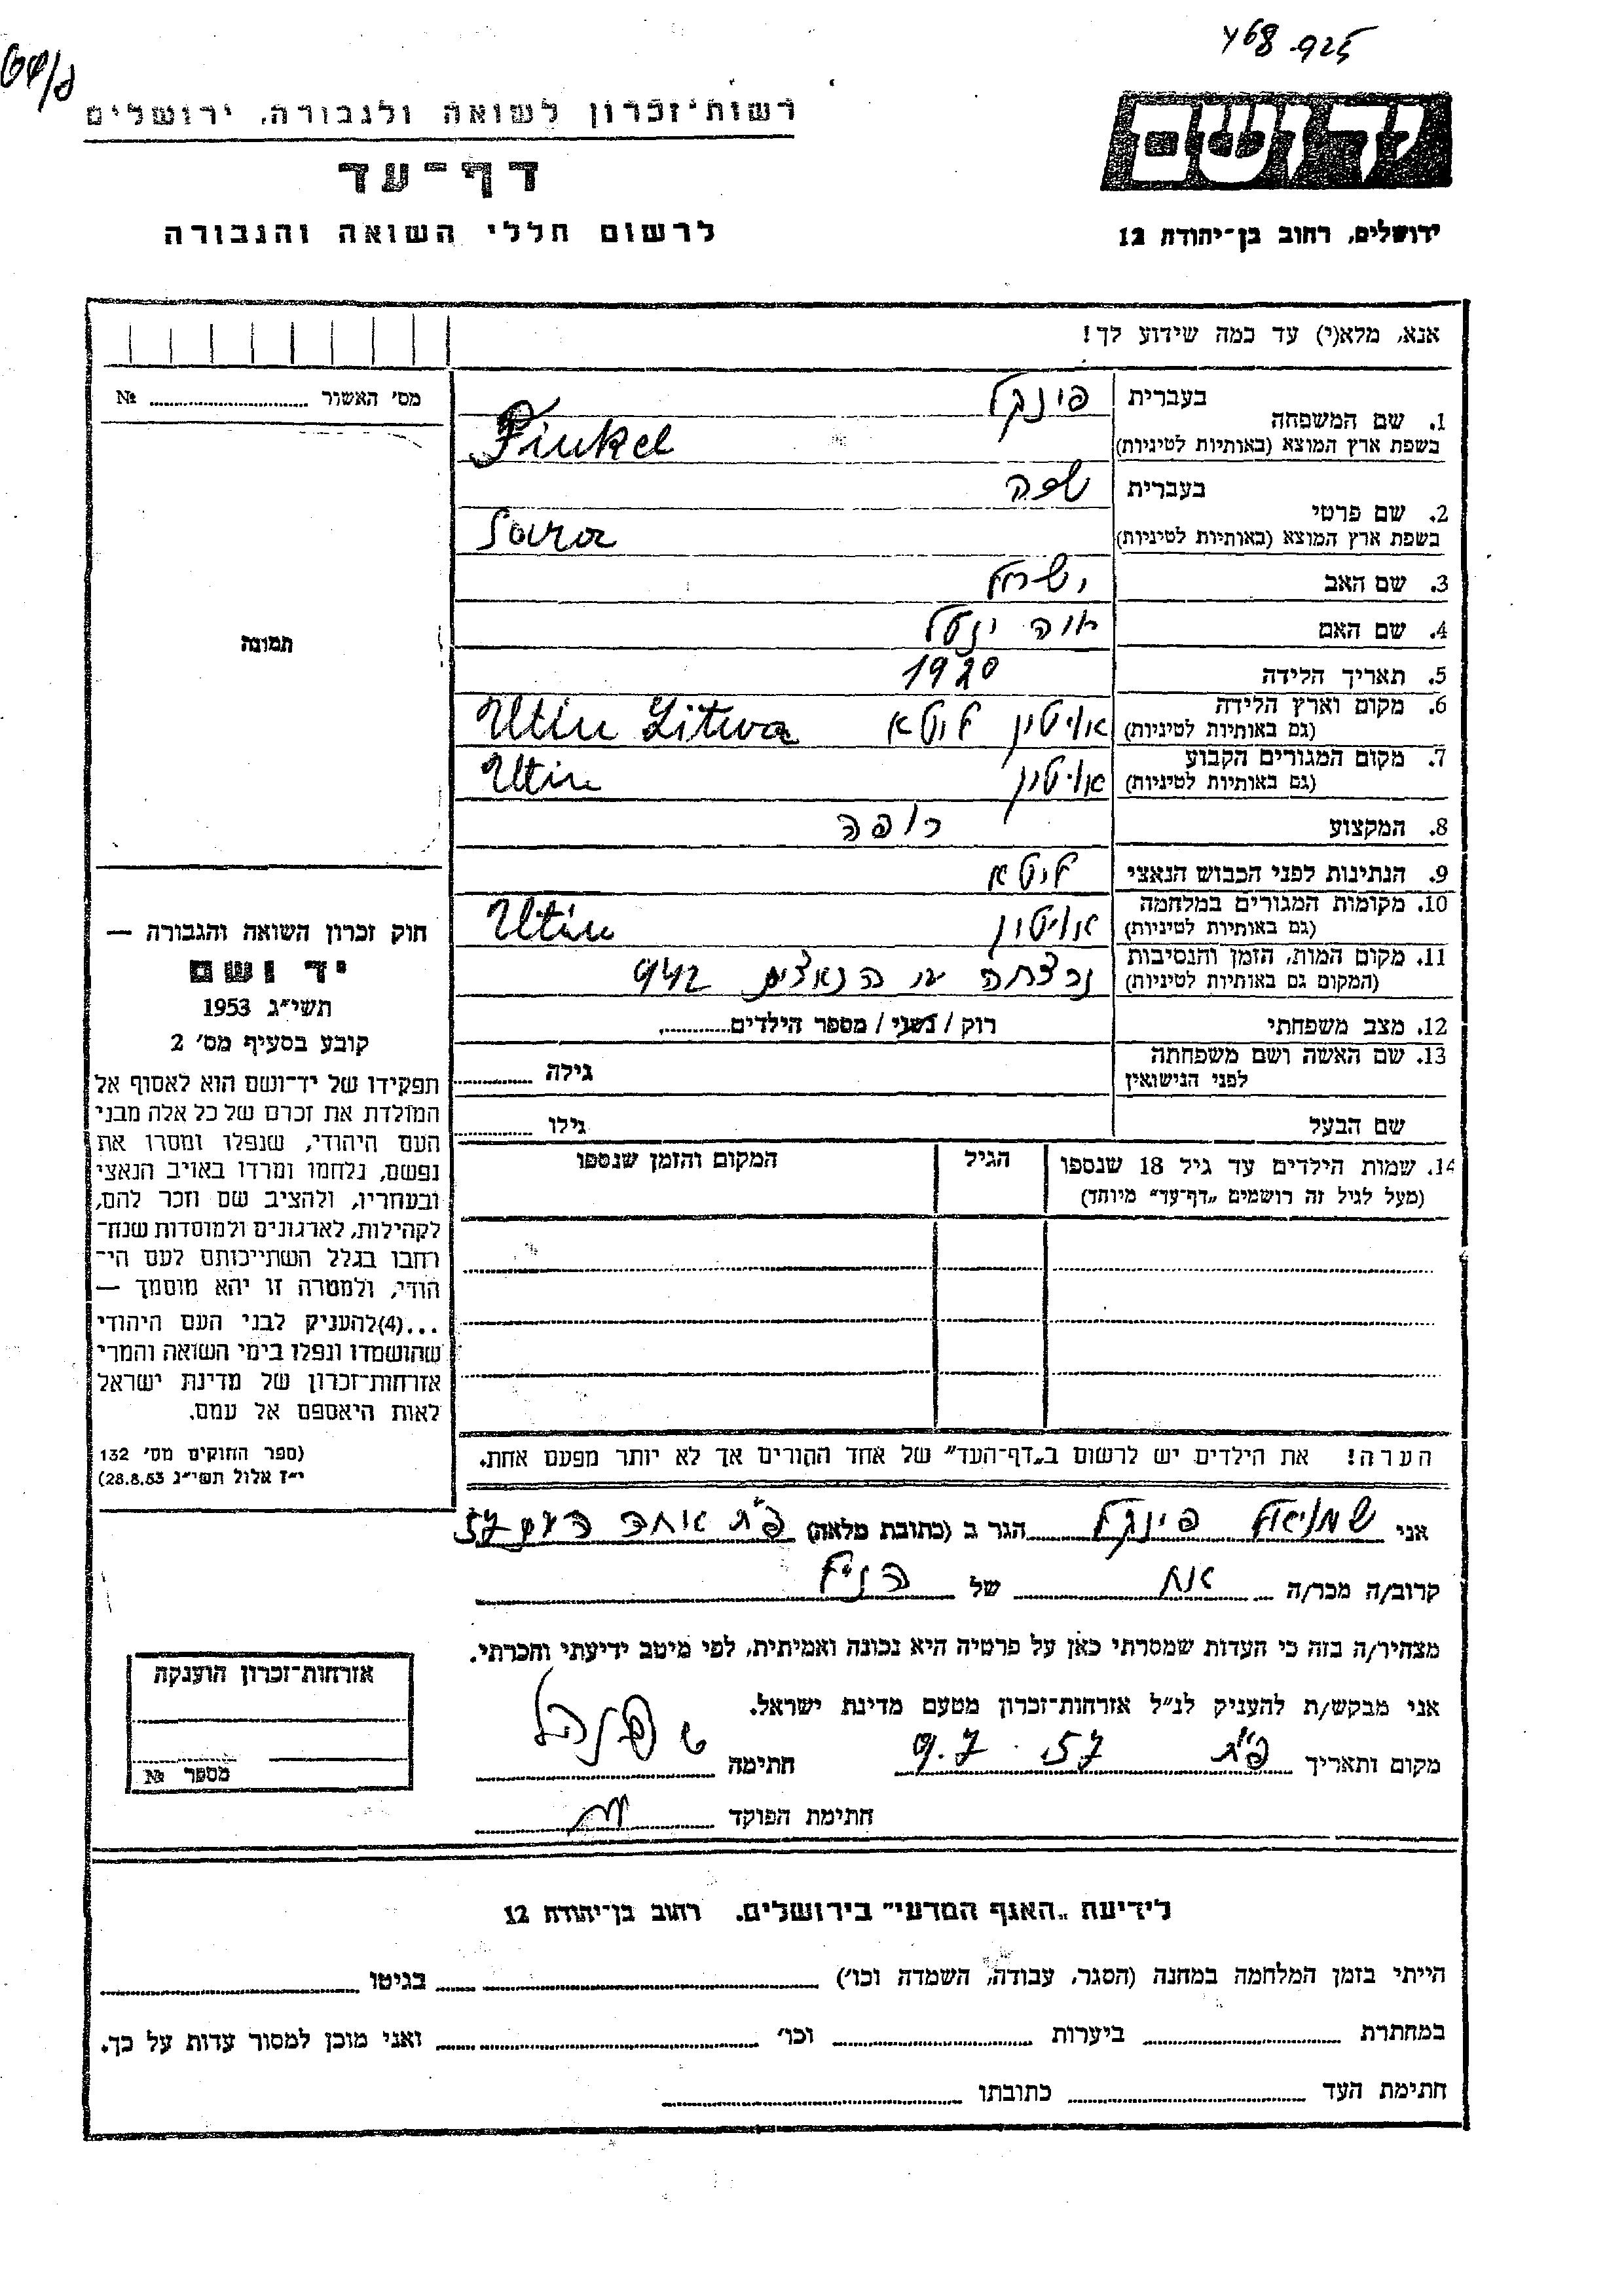 468 925
ידושם
ירושלים, רחוב בן־יהודה 12
רשות־זכרון לשואה ולגבורה, ירושלים
דף־עד
לרשום חללי השואה והגבורה
אנא, מלא(י) עד כמה שידוע לך!
מס' האשור № 
תמונה
1. שם המשפחה
בעברית פינקל
בשפת ארץ המוצא (באותיות לטיניות) Finkel
2. שם פרטי
בעברית שרה
בשפת ארץ המוצא (באותיות לטיניות) Sara
3. שם האב ישראל
4. שם האם
5. תאריך הלידה 1920
6. מקום וארץ הלידה
(גם באותיות לטיניות) אויטין ליטא Utin Litwa
7. מקום המגורים הקבוע
(גם באותיות לטיניות) אויטין Utin
8. המקצוע רופה
9. הנתינות לפני הכבוש הנאצי ליטא
10. מקומות המגורים במלחמה
(גם באותיות לטיניות) אויטין Utin
11. מקום המות, הזמן והנסיבות
(המקום גם באותיות לטיניות) נרצחה ע הנאצים 942
12. מצב משפחתי רוק / נשוי / מספר הילדים
13. שם האשה ושם משפחתה
לפני הנישואין גילה
שם הבעל גילו
14. שמות הילדים עד גיל 18 שנספו הגיל המקום והזמן שנספו
(מעל לגיל זה רושמים „דף־עד" מיוחד)
הערה! את הילדים יש לרשום ב„דף־העד" של אחד ההורים אך לא יותר מפעם אחת.
חוק זכרון השואה והגבורה —
יד ושם
תשי"ג 1953
קובע בסעיף מס' 2
תפקידו של יד־ושם הוא לאסוף אל
המולדת את זכרם של כל אלה מבני
העם היהודי, שנפלו ומסרו את
נפשם, נלחמו ומרדו באויב הנאצי
ובעוזריו, ולהציב שם וזכר להם,
לקהילות, לארגונים ולמוסדות שנח־
רבו בגלל השתייכותם לעם הי־
הודי, ולמטרה זו יהא מוסמך —
...(4)להעניק לבני העם היהודי
שהושמדו ונפלו בימי השואה והמרי
אזרחות־זכרון של מדינת ישראל
לאות היאספם אל עמם.
(ספר החוקים מס' 132
י"ז אלול תשי"ג 28.8.53)
אני שמואל פינקל הגר ב (כתובת מלאה) פ"ת אחד העם 57
קרוב/ה מכר/ה אח של הנ"ל
מצהיר/ה בזה כי העדות שמסרתי כאן על פרטיה היא נכונה ואמיתית, לפי מיטב ידיעתי והכרתי.
אני מבקש/ת להעניק לנ"ל אזרחות־זכרון מטעם מדינת ישראל.
מקום ותאריך פ"ת 9.7.57 חתימה
חתימת הפוקד
אזרחות־זכרון הוענקה
מספר №
לידיעת „האגף המדעי" בירושלים. רחוב בן־יהודה 12
הייתי בזמן המלחמה במחנה (הסגר, עבודה, השמדה וכו') בגיטו
במחתרת ביערות וכו' ואני מוכן למסור עדות על כך.
חתימת העד כתובתו